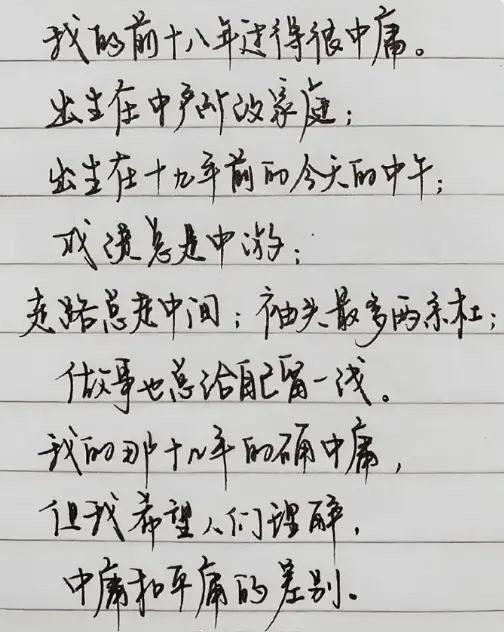 我的前十八年过得很中庸。
出生在中产阶级家庭；
出生在十九年前的今天的中午；
成绩总是中游；
走路总走中间；袖头最多两条杠；
做事也总给自己留一线。
我的那十八年的确中庸，
但我希望人们理解，
中庸和平庸的差别。